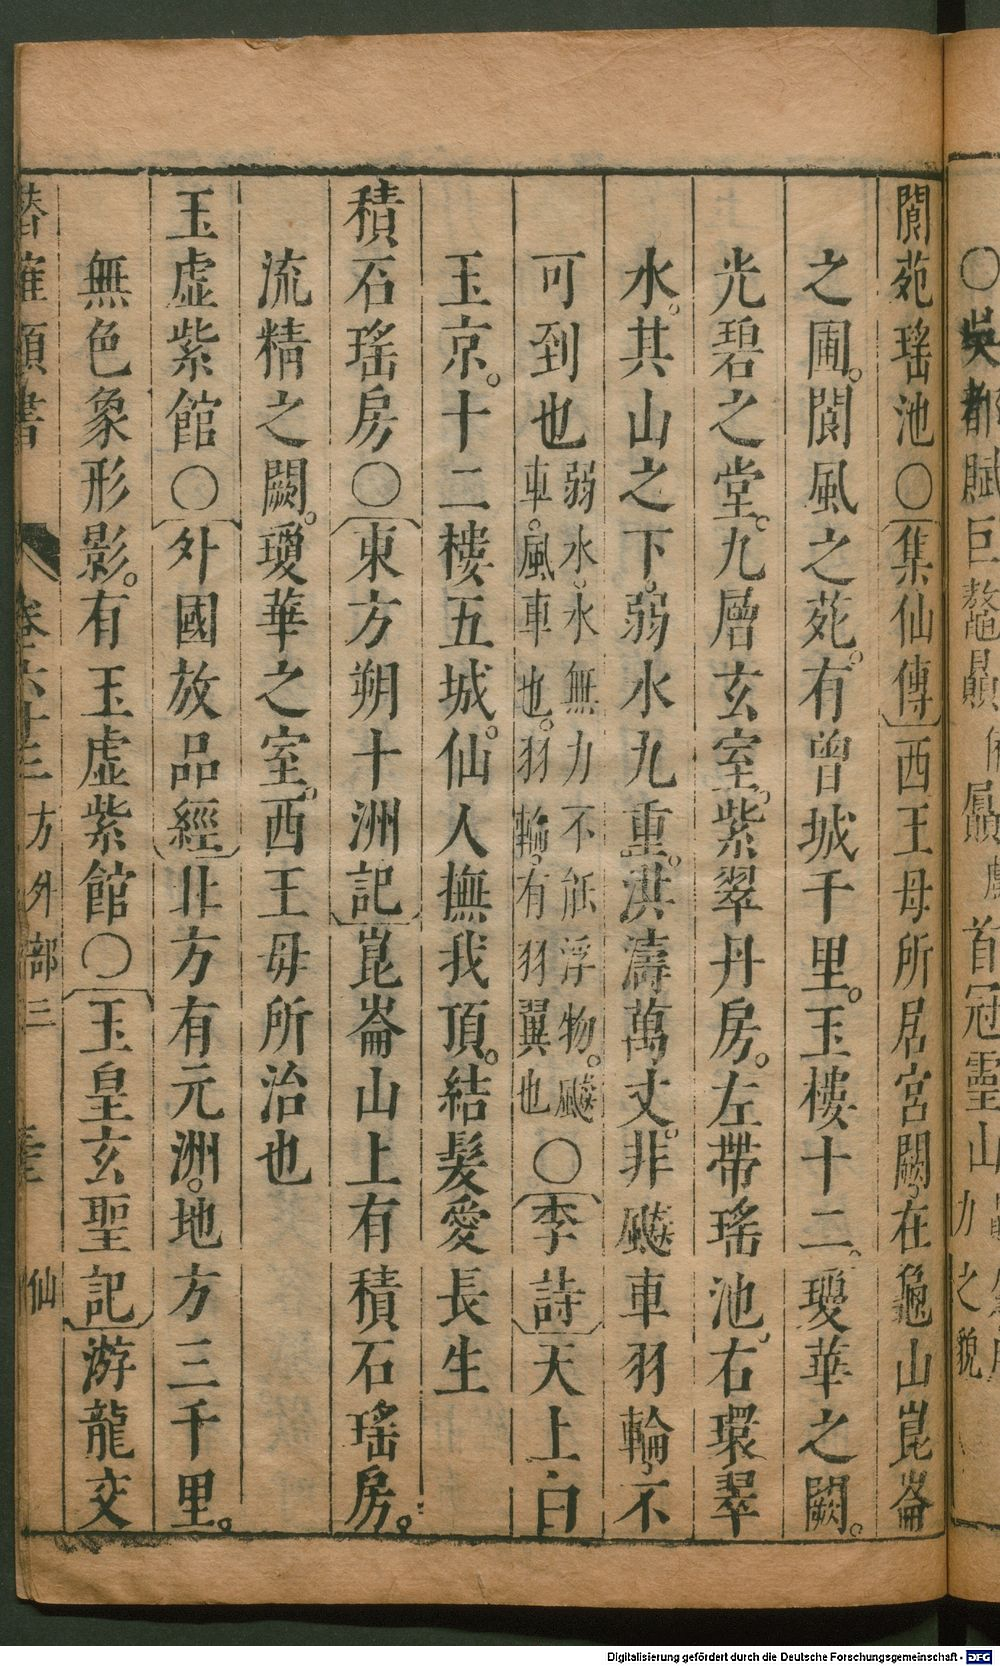 ○吳都賦巨鼇贔屓首冠靈山
閬苑瑤池○集仙傳西王母所居宮闕在龜山崑崙
之圃。閬風之苑。有曾城千里。玉樓十二。瓊華之闕。
光碧之堂。九層玄室。紫翠丹房。左帶瑤池。右環翠
水。其山之下。弱水九重。洪濤萬丈。非飇車羽輪不
可到也弱水。水無力不能浮物。飇
車。風車也。羽輪。有羽翼也○李詩天上白
玉京。十二樓五城。仙人撫我頂。結髮愛長生
積石瑤房○東方朔十洲記崑崙山上有積石瑤房。
流精之闕。瓊華之室。西王母所治也
玉虛紫館○外國放品經北方有元洲。地方三千里。
無色象形影。有玉虛紫館○玉皇玄聖記游龍交
潛確類書 卷六十三 方外部三 仙
Digitalisierung gefördert durch die Deutsche Forschungsgemeinschaft - DFG